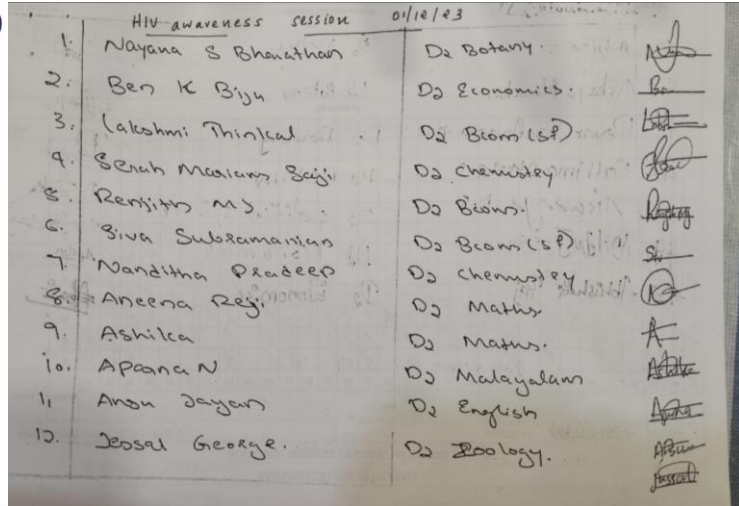 HIV awareness session 01/12/23
1. Nayana S Bharathan D2 Botany.
2. Ben K Biju D2 Economics.
3. Lakshmi Thinkal D2 Bcom (SF)
4. Serah Mariam Saji D2 Chemistry
5. Renjith MS D2 Bcom.
6. Siva Subramanian D2 Bcom (SF)
7. Nanditha Pradeep D2 Chemistry
8. Aneena Reji D2 Maths.
9. Ashika D2 Maths.
10. Aparna N D2 Malayalam
11. Ansu Jayan D2 English
12. Jessal George. D2 Zoology.